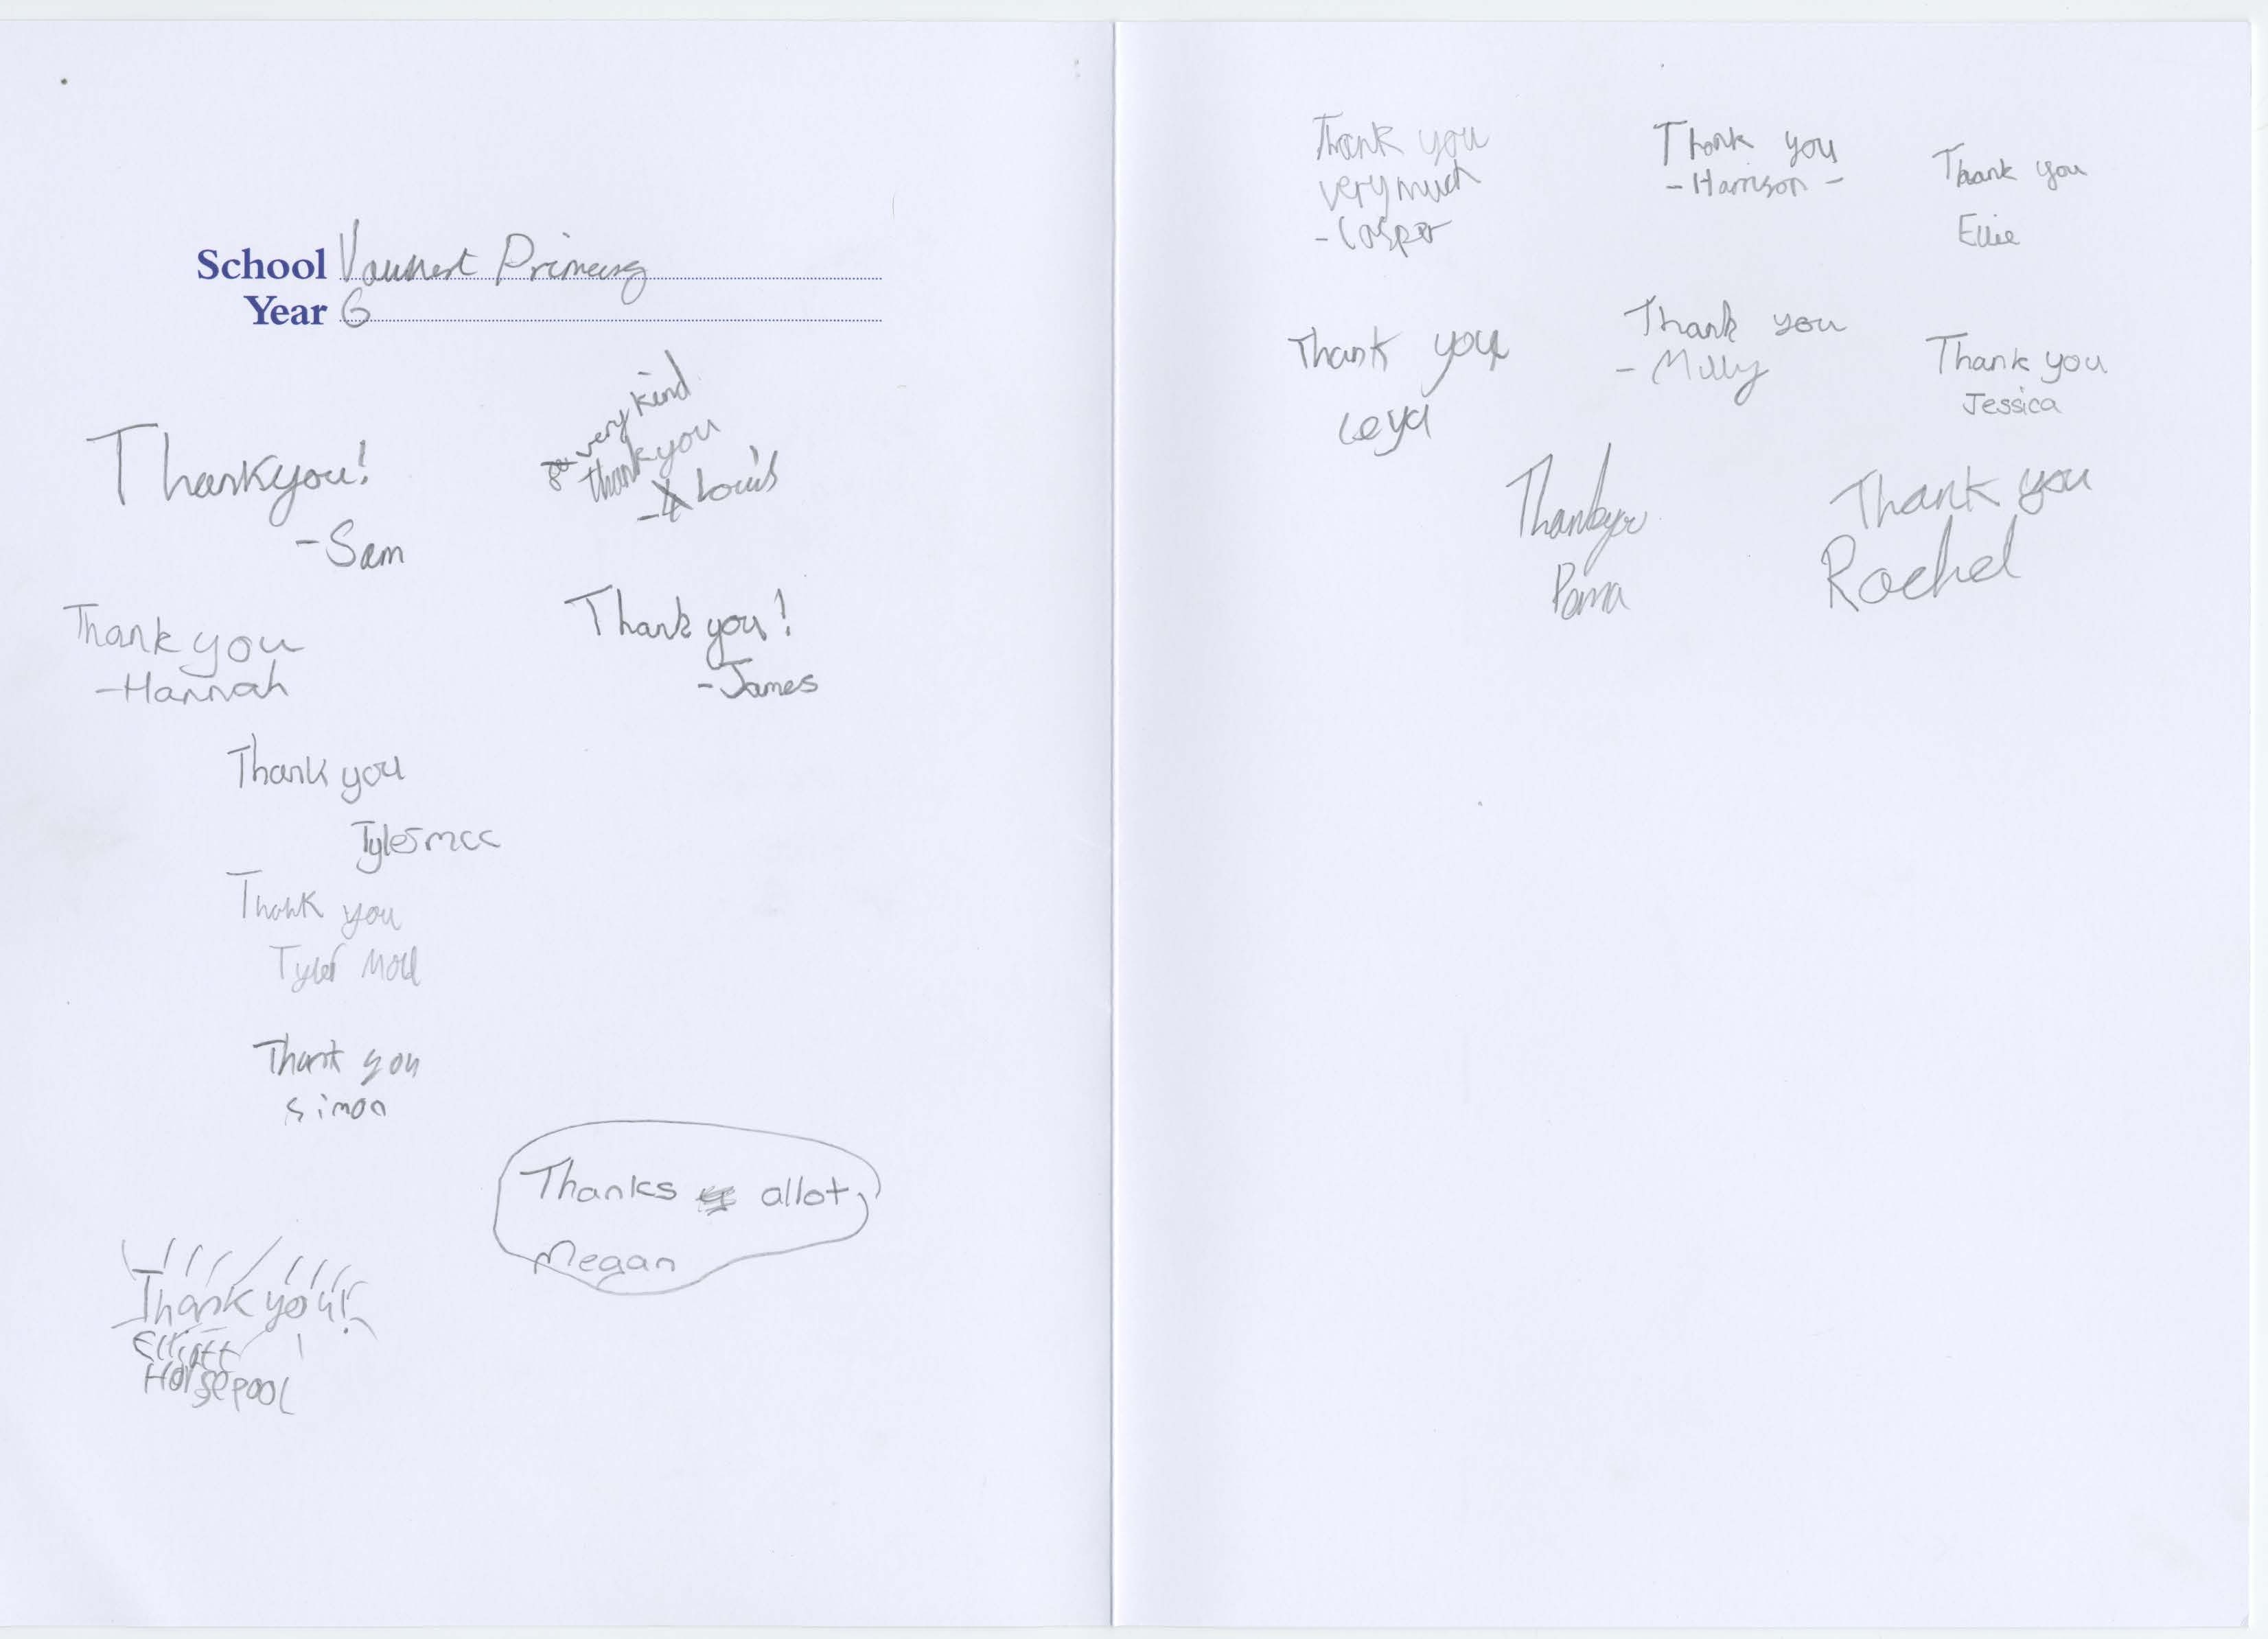 School Primary
Year 6
Thankyou!
-Sam
very kind
thank you
- Louis
Thank you
-Hannah
Thank you!
-James
Thank you
Tyler mcc
Thank you
Tyler
Thank you
Simon
Thanks allot,
Megan
Thank you!
Elliott
Horsepool
Thank you
very much
-Casper
Thank you
-Harrison-
Thank you
Ellie
Thank you
Leya
Thank you
-Milly
Thank you
Jessica
Thankyou
Thank you
Rachel